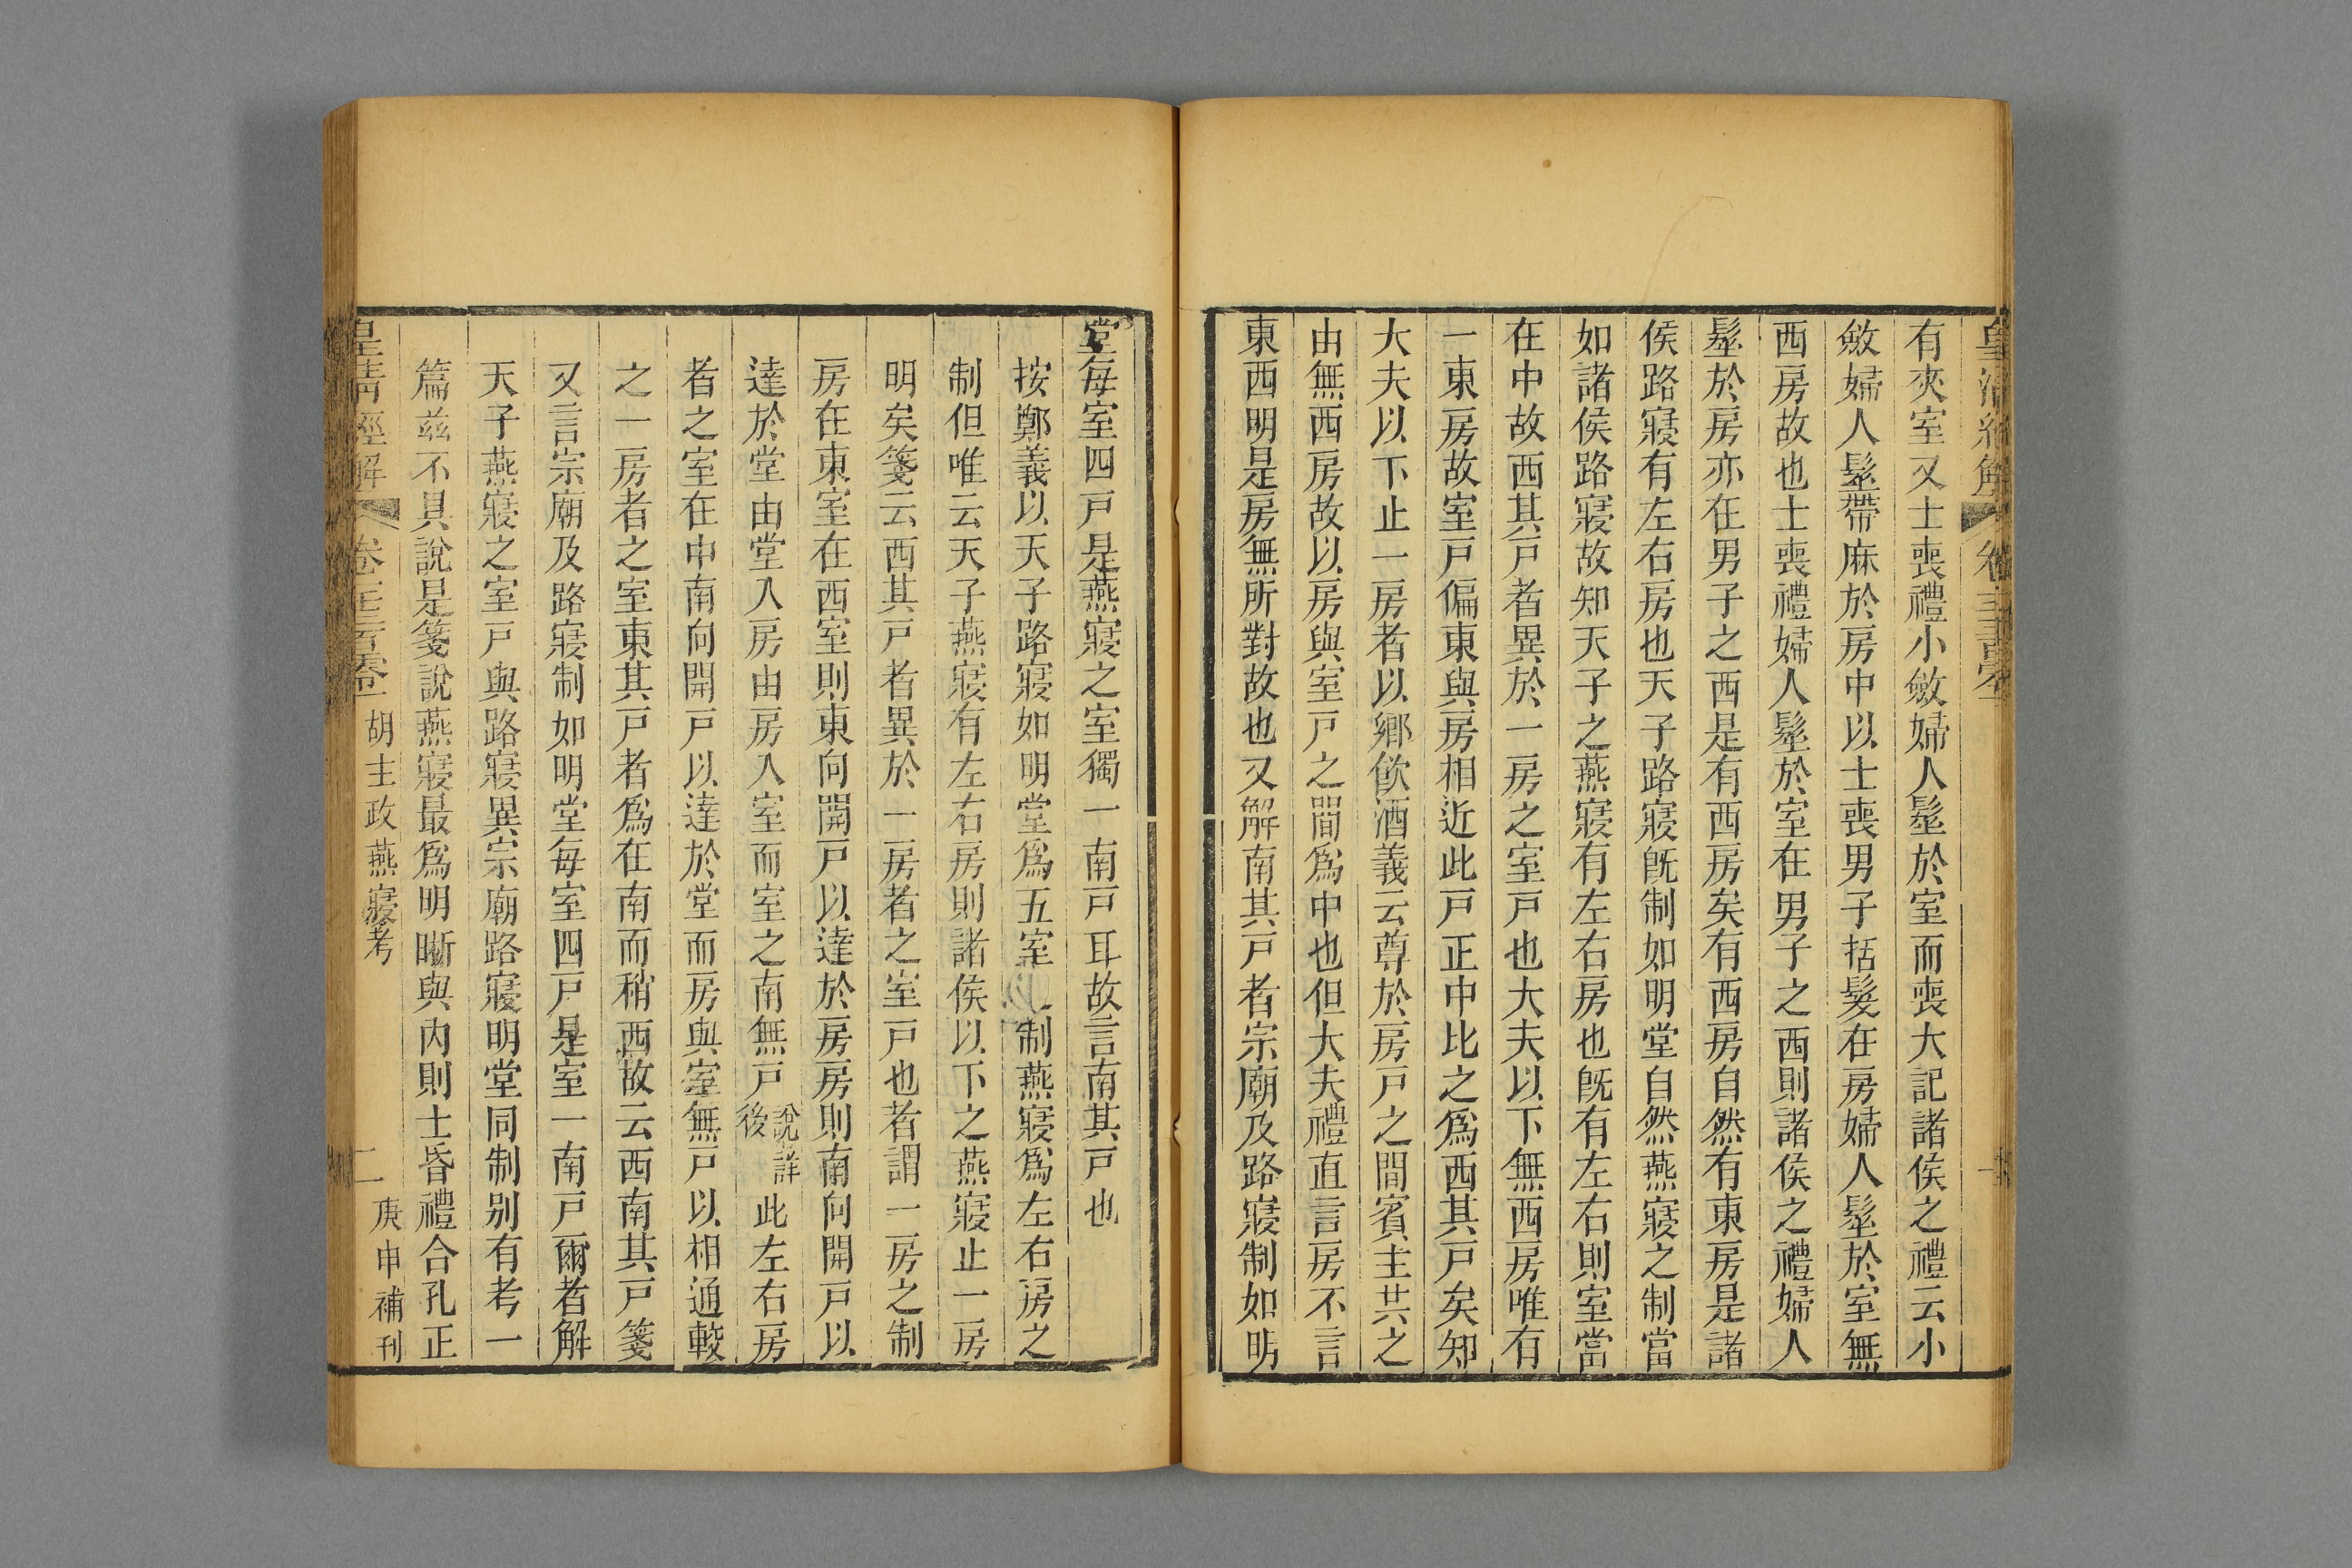 有夾室又士喪禮小斂婦人髽於室而喪大記諸侯之禮云小
斂婦人髽帶麻於房中以士喪男子括髮在房婦人髽於室無
西房故也士喪禮婦人髽於室在男子之西則諸侯之禮婦人
髽於房亦在男子之西是有西房矣有西房自然有東房是諸
侯路寢有左右房也天子路寢旣制如明堂自然燕寢之制當
如諸侯路寢故知天子之燕寢有左右房也旣有左右則室當
在中故西其戸者異於一房之室戸也大夫以下無西房唯有
一東房故室戸偏東與房相近此戸正中比之爲西其戸矣知
大夫以下止一房者以鄉飮酒義云尊於房戸之間賓主共之
由無西房故以房與室戸之間爲中也但大夫禮直言房不言
東西明是房無所對故也又解南其戸者宗廟及路寢制如明
堂每室四戸是燕寢之室獨一南戸耳故言南其戸也
按鄭義以天子路寢如明堂爲五室之制燕寢爲左右房之
制但唯云天子燕寢有左右房則諸侯以下之燕寢止一房
明矣箋云西其戸者異於一房者之室戸也者謂一房之制
房在東室在西室則東向開戸以達於房房則南向開戸以
達於堂由堂入房由房入室而室之南無戸說詳後此左右房
者之室在中南向開戸以達於堂而房與室無戸以相通較
之一房者之室東其戸者爲在南而稍西故云西南其戸箋
又言宗廟及路寢制如明堂每室四戸是室一南戸爾者解
天子燕寢之室戸與路寢異宗廟路寢明堂同制别有考一
篇兹不具說是箋說燕寢最爲明晰與內則士昏禮合孔正
皇清經解 卷千三百零一 胡主政燕寢考 二 庚申補刊